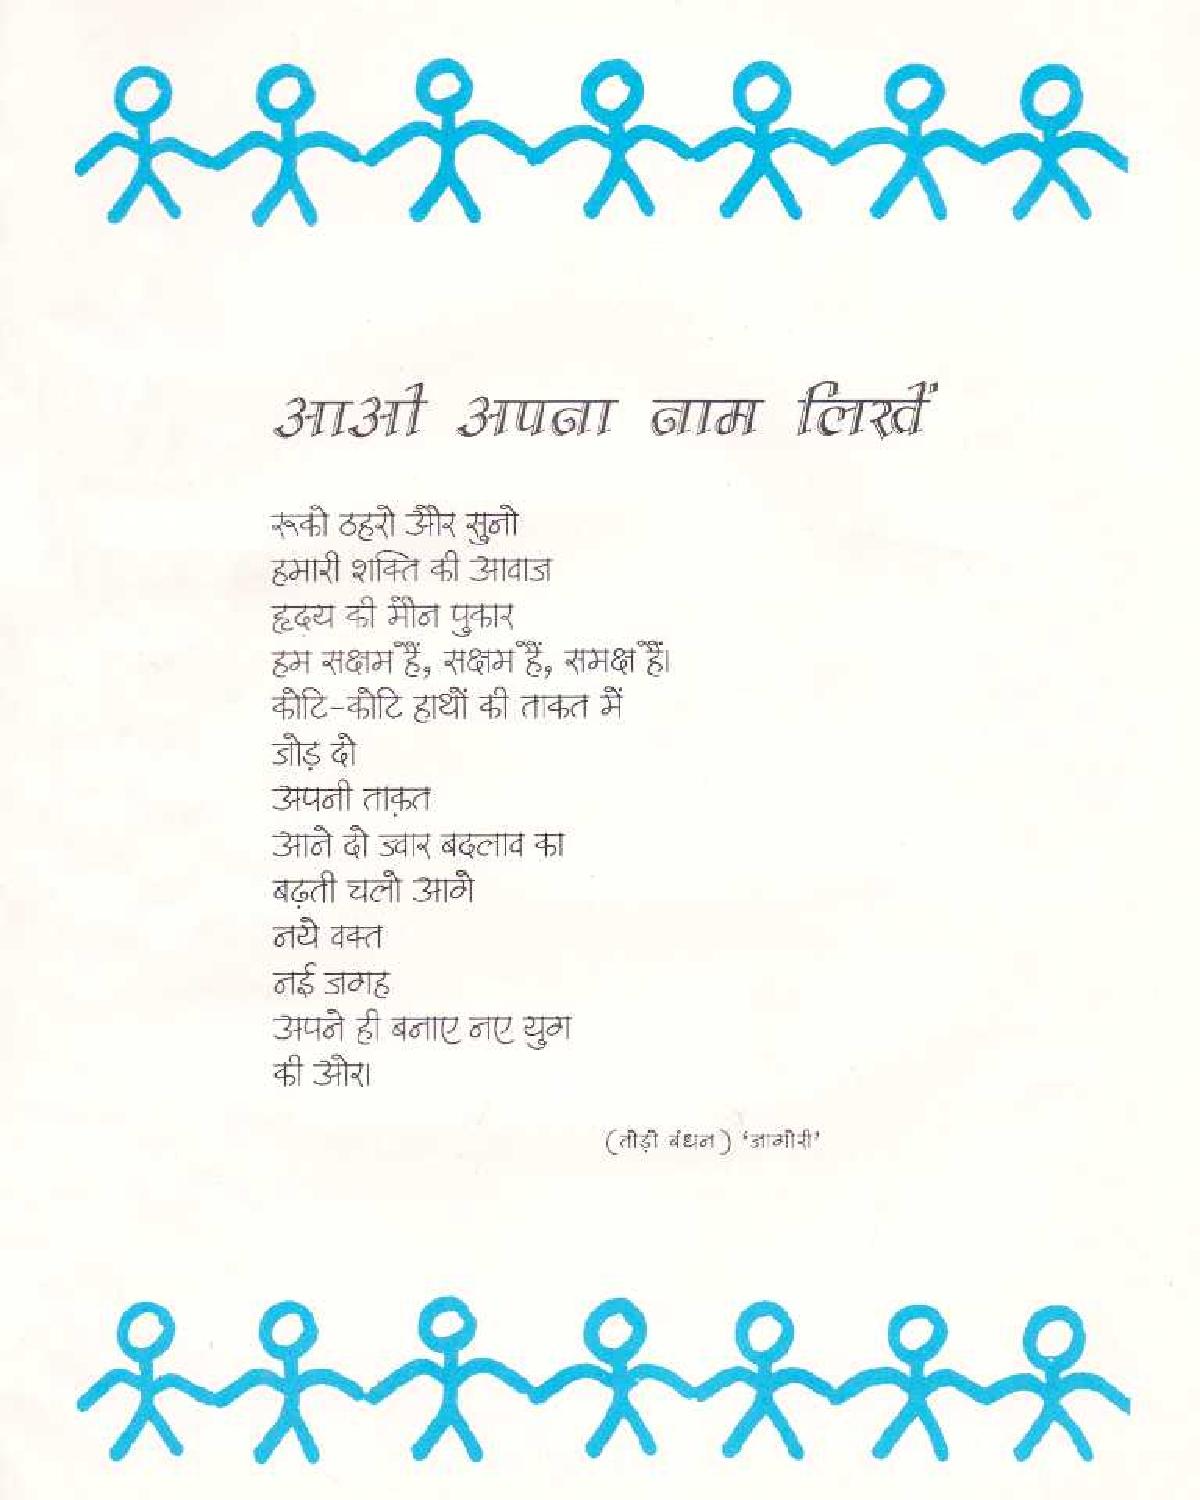 आओ अपना नाम लिखें
रूको ठहरो और सुनो
हमारी शक्ति की आवाज
हृदय की मौन पुकार
हम सक्षम हैं, सक्षम हैं, समक्ष हैं।
कोटि-कोटि हाथों की ताकत में
जोड़ दो
अपनी ताक़त
आने दो ज्वार बदलाव का
बढ़ती चलो आगे
नये वक्त
नई जगह
अपने ही बनाए नए युग
की ओर।
(तोड़ो बंधन) ‘जागोरी’